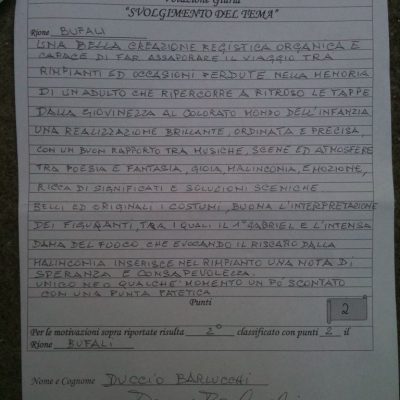 Votazione Giuria
"SVOLGIMENTO DEL TEMA"
Rione BUFALI
UNA BELLA CREAZIONE REGISTICA ORGANICA E
CAPACE DI FAR ASSAPORARE IL VIAGGIO TRA
RIMPIANTI ED OCCASIONI PERDUTE NELLA MEMORIA
DI UN ADULTO CHE RIPERCORRE A RITROSO LE TAPPE
DALLA GIOVINEZZA AL COLORATO MONDO DELL'INFANZIA
UNA REALIZZAZIONE BRILLANTE, ORDINATA E PRECISA,
CON UN BUON RAPPORTO TRA MUSICHE, SCENE ED ATMOSFERE
TRA POESIA E FANTASIA, GIOIA, MALINCONIA, EMOZIONE,
RICCA DI SIGNIFICATI E SOLUZIONI SCENICHE
BELLI ED ORIGINALI I COSTUMI, BUONA L'INTERPRETAZIONE
DEI FIGURANTI, TRA I QUALI IL 1° GABRIEL E L'INTENSA
DAMA DEL FUOCO CHE EVOCANDO IL RISCATTO DALLA
MALINCONIA INSERISCE NEL RIMPIANTO UNA NOTA DI
SPERANZA E CONSAPEVOLEZZA.
UNICO NEO QUALCHE MOMENTO UN PO' SCONTATO
CON UNA PUNTA PATETICA.
Punti
2
Per le motivazioni sopra riportate risulta 2° classificato con punti 2 il
Rione BUFALI
Nome e Cognome DUCCIO BARLUCCHI